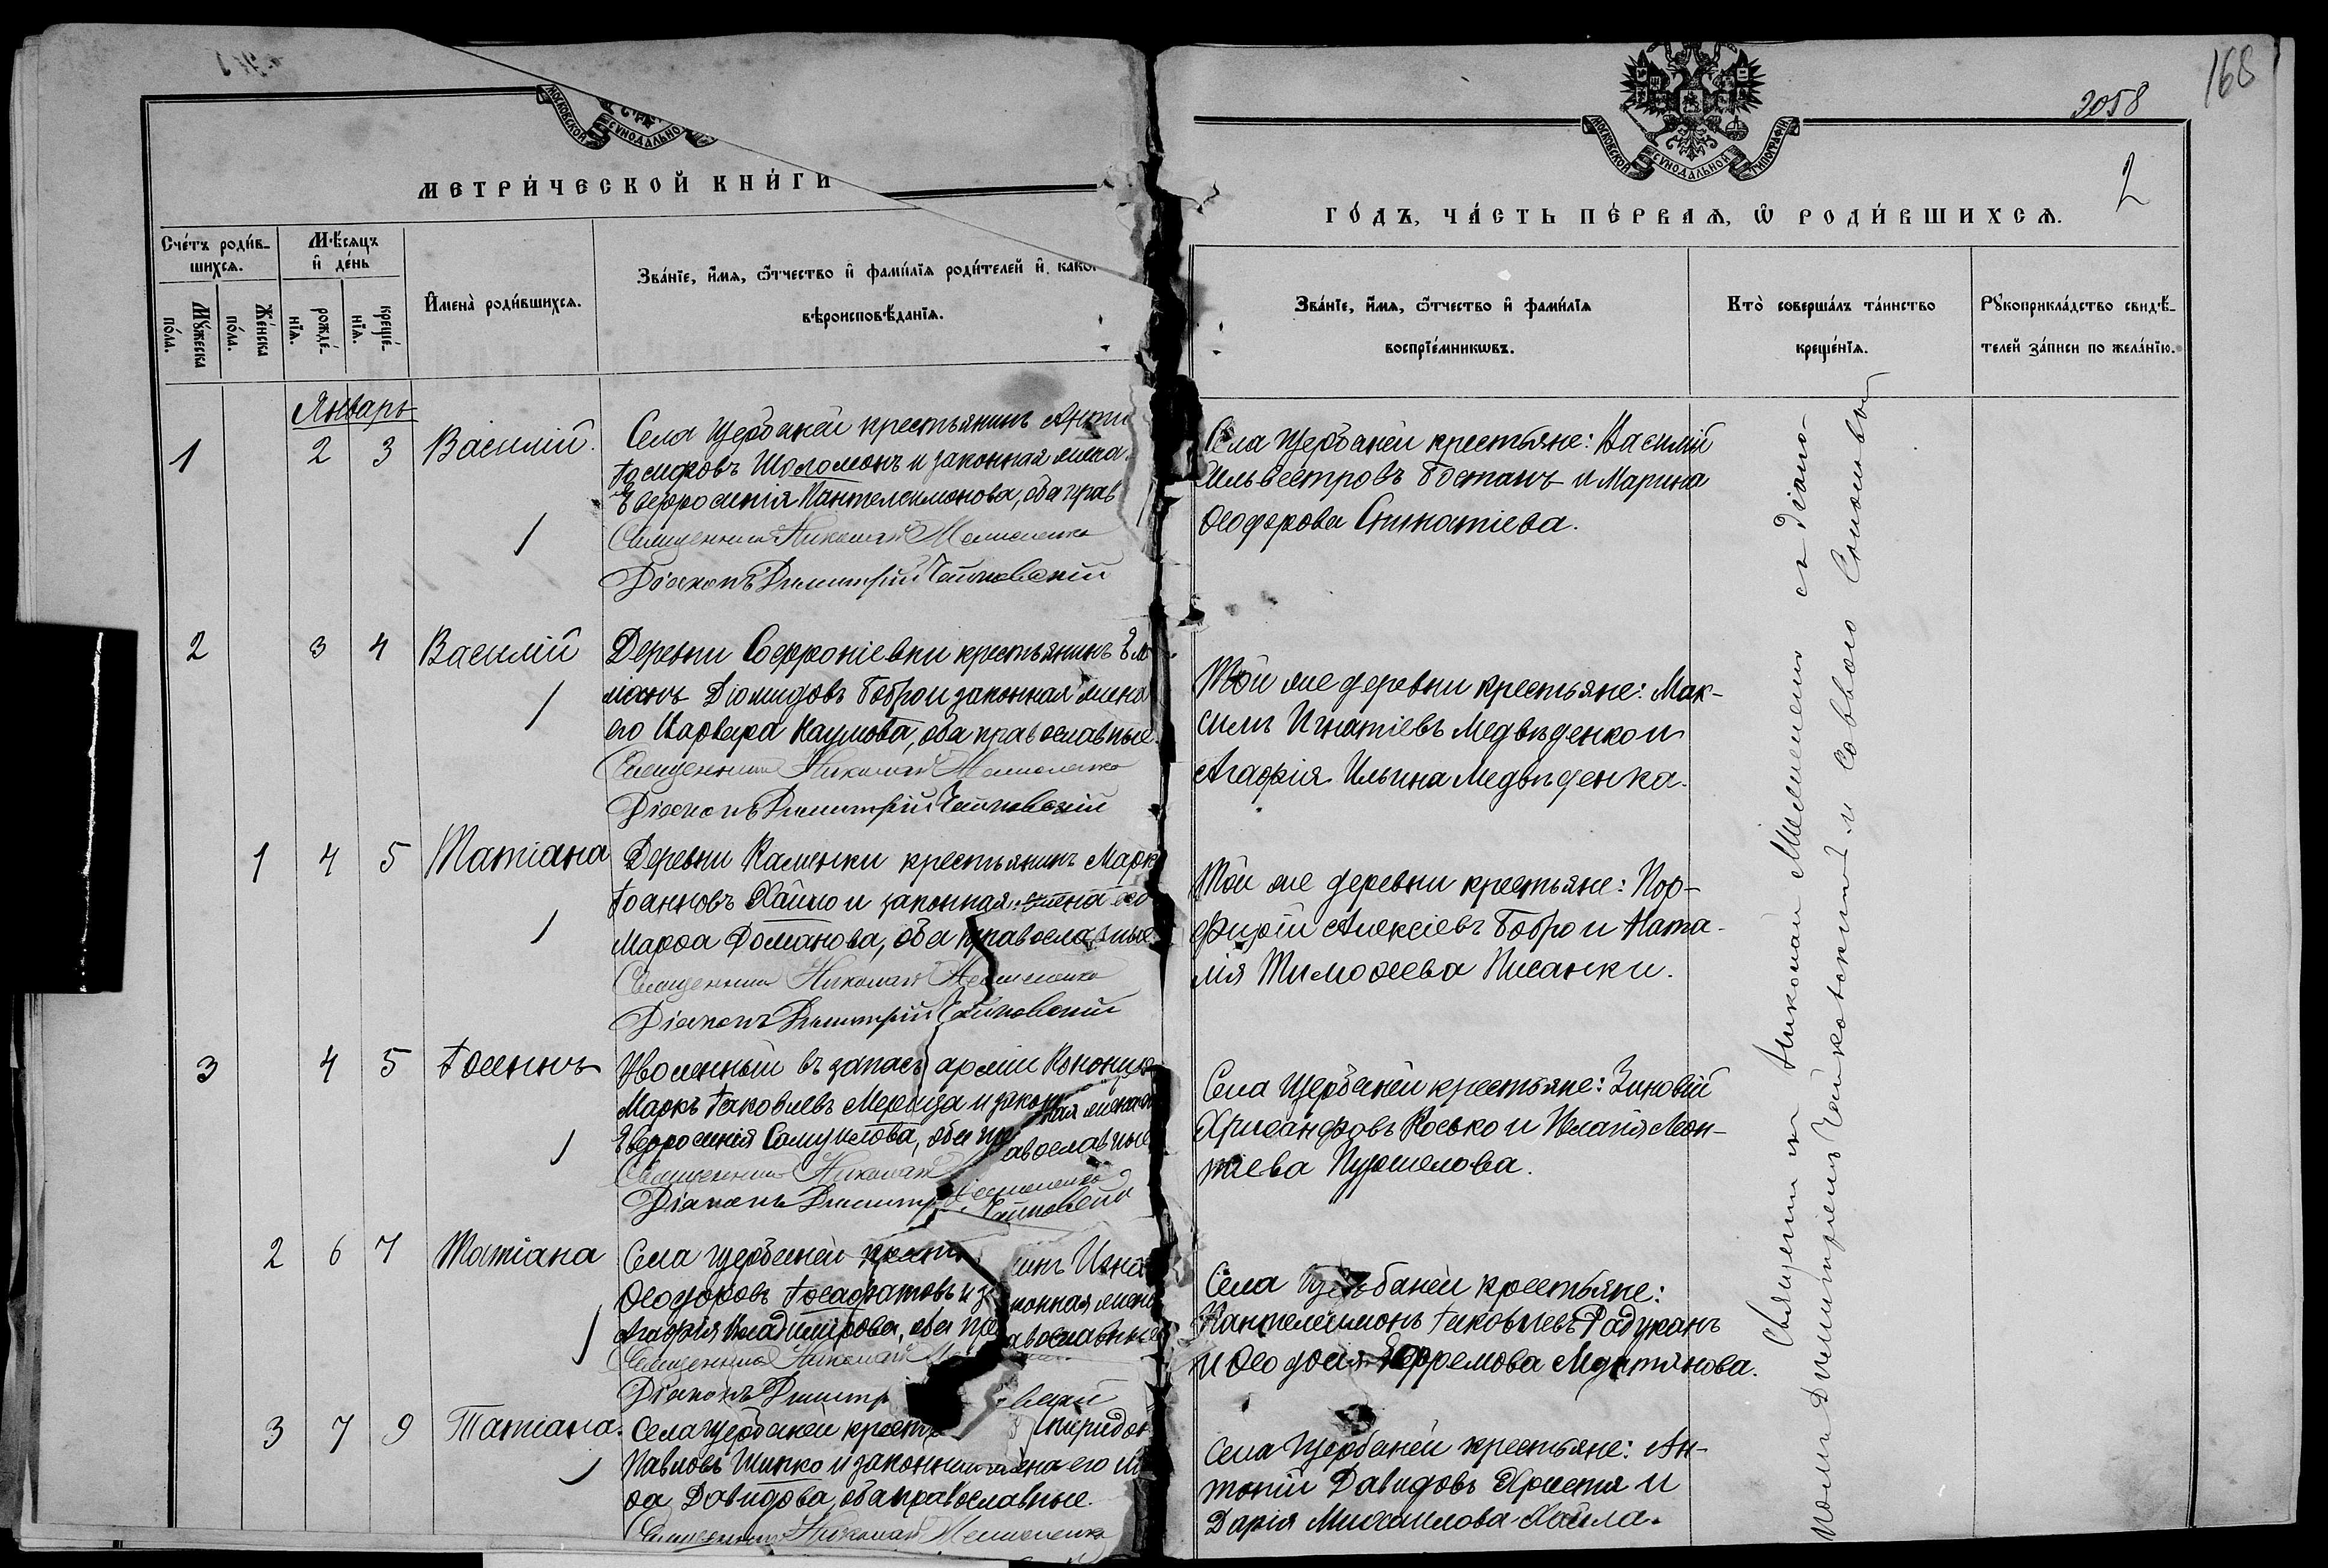 168
2058
2
МОСКОВСКОЙ СѴНОДАЛЬНО
МОСКОВСКОЙ СѴНОДАЛЬНОЙ ТИПОГРАФІИ
МЕТРИ́ЧЕСКОЙ КНИ́ГИ
ГО́ДЪ, ЧА́СТЬ ПЕ́РВАѦ, Ѿ РОДИ́ВШИХСѦ.
Сче́тъ роди́в-
шихсѧ.
Мꙋ́жеска по́ла.
Же́нска по́ла.
Мѣ́сѧцъ
и҆ де́нь
рожде́-нїѧ.
креще́-нїѧ.
И҆мена̀ роди́вшихсѧ.
Зва́нїе, и҆́мѧ, ѻ҆́тчество и҆ фами́лїѧ роди́телей и҆ како
вѣроисповѣ́данїѧ.
Зва́нїе, и҆́мѧ, ѻ҆́тчество и҆ фами́лїѧ
воспрїе́мникѡвъ.
Кто̀ соверша́лъ та́инство
креще́нїѧ.
Рꙋкоприкла́дство свидѣ́-
телей за́писи по жела́нїю.
Январь
1 2 3 Василій.
Села Щербаней крестьянинъ
Шоломонъ и законная жена
Евфросинія Пантелеимонова, оба прав
Священникъ Николай
Діаконъ Димитрій Чайковскій
Села Щербаней крестьяне: Василій
Сильвестровъ Бостанъ и Марина
Ѳеодорова Игнатіева.
2 3 4 Василій
Деревни Софроніевки крестьянинъ
Діомидовъ Бобро и законная жена
его Варвара Наумова, оба православные.
Священникъ Николай
Діаконъ Димитрій Чайковскій
Той же деревни крестьяне: Мак-
симъ Игнатіевъ Медвѣденко и
Агафія Ильина Медвѣденка.
1 4 5 Татіана
Деревни Каменки крестьянинъ Марк
Іоанновъ Хайло и законная жена его
Марѳа Романова, оба православные.
Священникъ Николай
Діаконъ Димитрій Чайковскій
Той же деревни крестьяне: Пор-
фирій Алексіевъ Бобро и Ната-
лія Тимоѳеева Писанки.
3 4 5 Іоаннъ
Уволенный въ запасъ арміи
Маркъ Іаковлевъ Мереуца и законная жена
Евфросинія Самуилова, оба православные
Священникъ Николай
Діаконъ Димитр Чайковскій
Села Щербаней крестьяне: Зиновій
Хрисанфовъ Косько и Пелагія Леон-
тіева Пуршелова.
2 6 7 Татіана
Села Щербаней крест инъ Игна
Ѳеодоровъ Іосафатовъ и з конная жена
Агафія Владимірова, оба православные
Священникъ Николай
Діаконъ Димитр вскій
Села Щербаней крестьяне:
Пантелеимонъ Іаковлевъ Радуканъ
и Ѳеодосія Ефремова Мунтянова.
3 7 9 Татіана.
Села Щербаней крест Спиридон
Павловъ Шипко и законная жена его
Давидова, оба православные.
Священникъ Николай
Села Щербаней крестьяне: Ан-
тоній Давидовъ Хрестя и
Дарія Михаилова Хайла.
Священникъ Николай съ Діако-
номъ Димитріемъ Чайковскимъ и